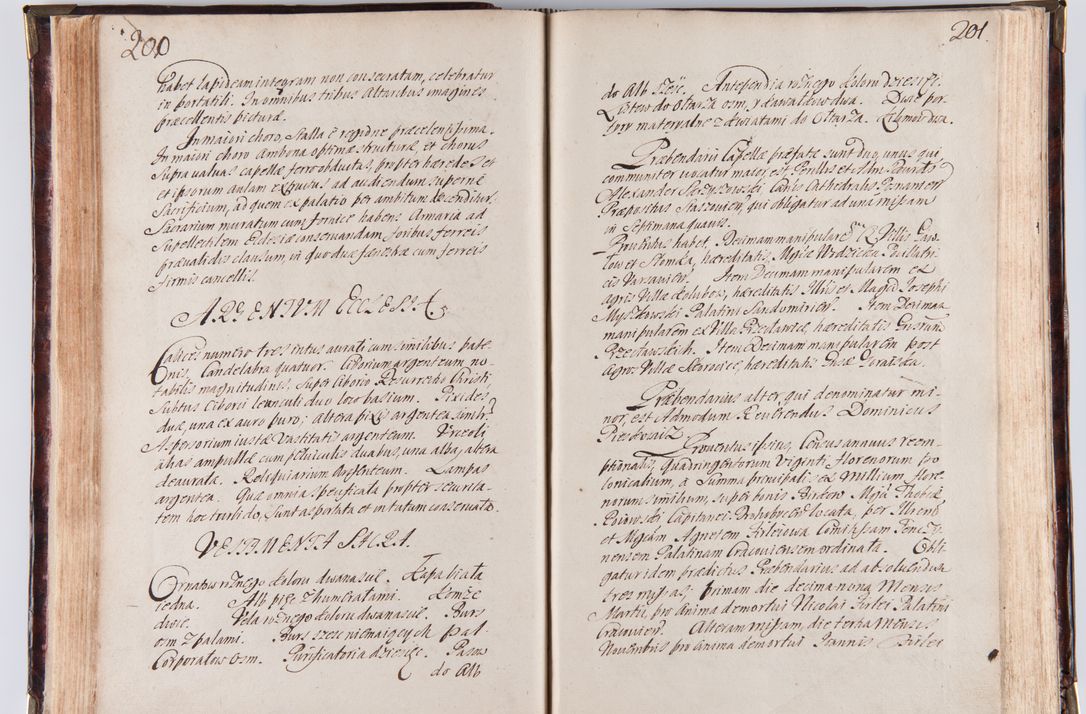 200
habet lapideam integram non consecratam, celebratur
in portatili. In omnibus tribus Altaribus imagines
præcellentis picturæ.
In maiori choro, stalla è regione præcelentissima.
In maiori choro Ambona optimæ structuræ, et chorus
supra valvas capellæ ferro obductus, propter heredes et
et ipsorum aulam ad audiendum supernè
Sacrificium, ad quem ex palatio per ambitum descenditur.
Sacrarium muratum cum fornice habens Armaria ad
supellectilem Ecclesiæ conservandam, foribus ferreis
prævalidis clausum, in quo duæ fenestræ cum ferreis
firmis cancellis.
ARGENTUM ECCLESIÆ
Calices numero tres intus aurati cum similibus pate-
nis. Candelabra quatuor. Ciborium argenteum no-
tabilis magnitudinis, super Ciborio Resurrectio Christi,
subtus Ciborii leunculi duo loco basium. Pixides
duæ, una ex auro puro; altera pixis argentea similr.
Aspersorium iustæ Vastitatis argenteum. Urceoli
alias ampullæ cum pelviculis duabus, una alba, altera
deaurata. Reliquiarium Argenteum. Lampas
argentea. Quæ omnia specificata propter securita-
tem hoc turbido, sunt asportata et in tutum conservata.
VESTIMENTA SACRA.
Ornatus rożnego koloru dwanascie. Kapa biała
iedna. Alb pięc z humerałami. Komze
dwie. Vela rożnego koloru dwanascie. Burs
osm z palami. Burs szesc niemaiących pal
Corporałow osm. Purificatoria dziesięc. Pasow
do Alb
201.
do Alb szesc. Antependia rożnego koloru dziesięc.
Listew do Ołtarza osm, dwa. Dwie por-
tyry materyalne z kwiatami do Ołtarza. Kilimow dwa.
Præbendarii Capellæ præfatæ sunt duo, unus qui
communiter vocatur maior, est, Perillis et Adm. Reverendus
Alexander Canonicus Cathedralis Posnanien
Præpositus Staszovien, qui obligatur ad unam missam
in septimana quavis.
Proventus habet, Decimam manipularem ex Villis
et Słomka, hæreditatis, Mgcæ
cis Varsavien. Item Decimam manipularem ex
agris Villæ hæreditatis Illris et Magci Josephi
Myszkowski Palatini Sandomirien. Item Decimam
manipularem ex Villa hæreditatis Grosrum
Item Decimam manipularem post
Agros Villæ hæreditatis
Præbendarius alter, qui denominatur mi-
nor, est Admodum Reverendus Dominicus
Proventus ipsius, Census annuus reem-
ptionalis, Quadringentorum viginti florenorum po-
lonicalium, à summa principali, sex millium flore-
norum similium, super bonis Mgci
Capitanei locata, per
et Mgcam Agnetem Firleiowa
nensem Palatinam Cracoviensem ordinata. Obli-
gatur idem prædictus Præbendarius ad absolvendas
tres missas: primam die decima nona Mensis
Martii, pro anima demortui Nicolai Firlei Palatini
Cracovien. Alteram missam, die tertia Mensis
Novembris pro anima demortui Ioannis Firlei